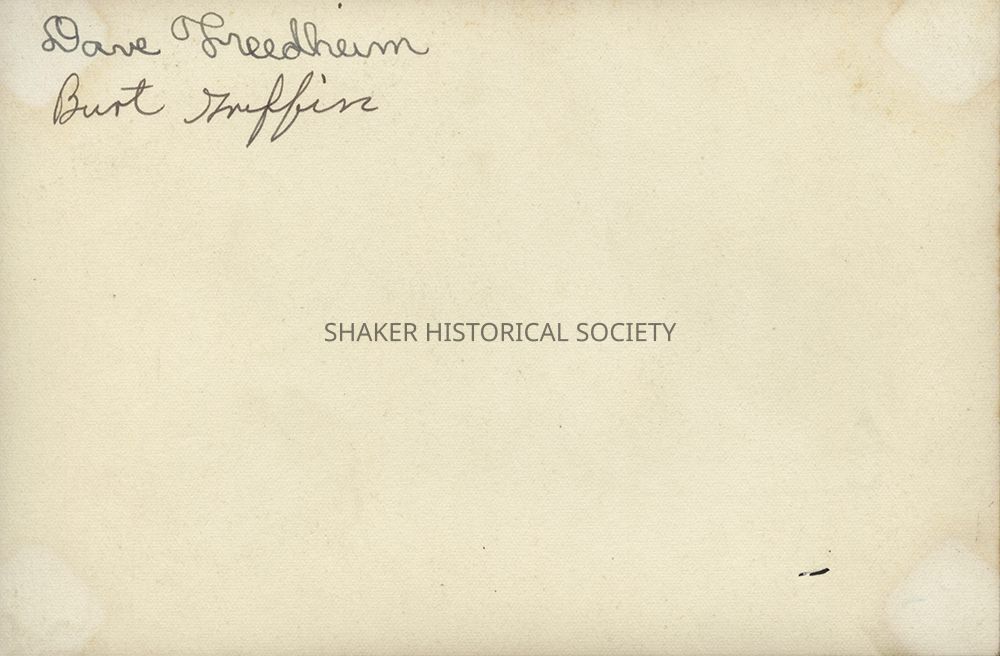 Dave Freedheim
Burt Griffin
SHAKER HISTORICAL SOCIETY